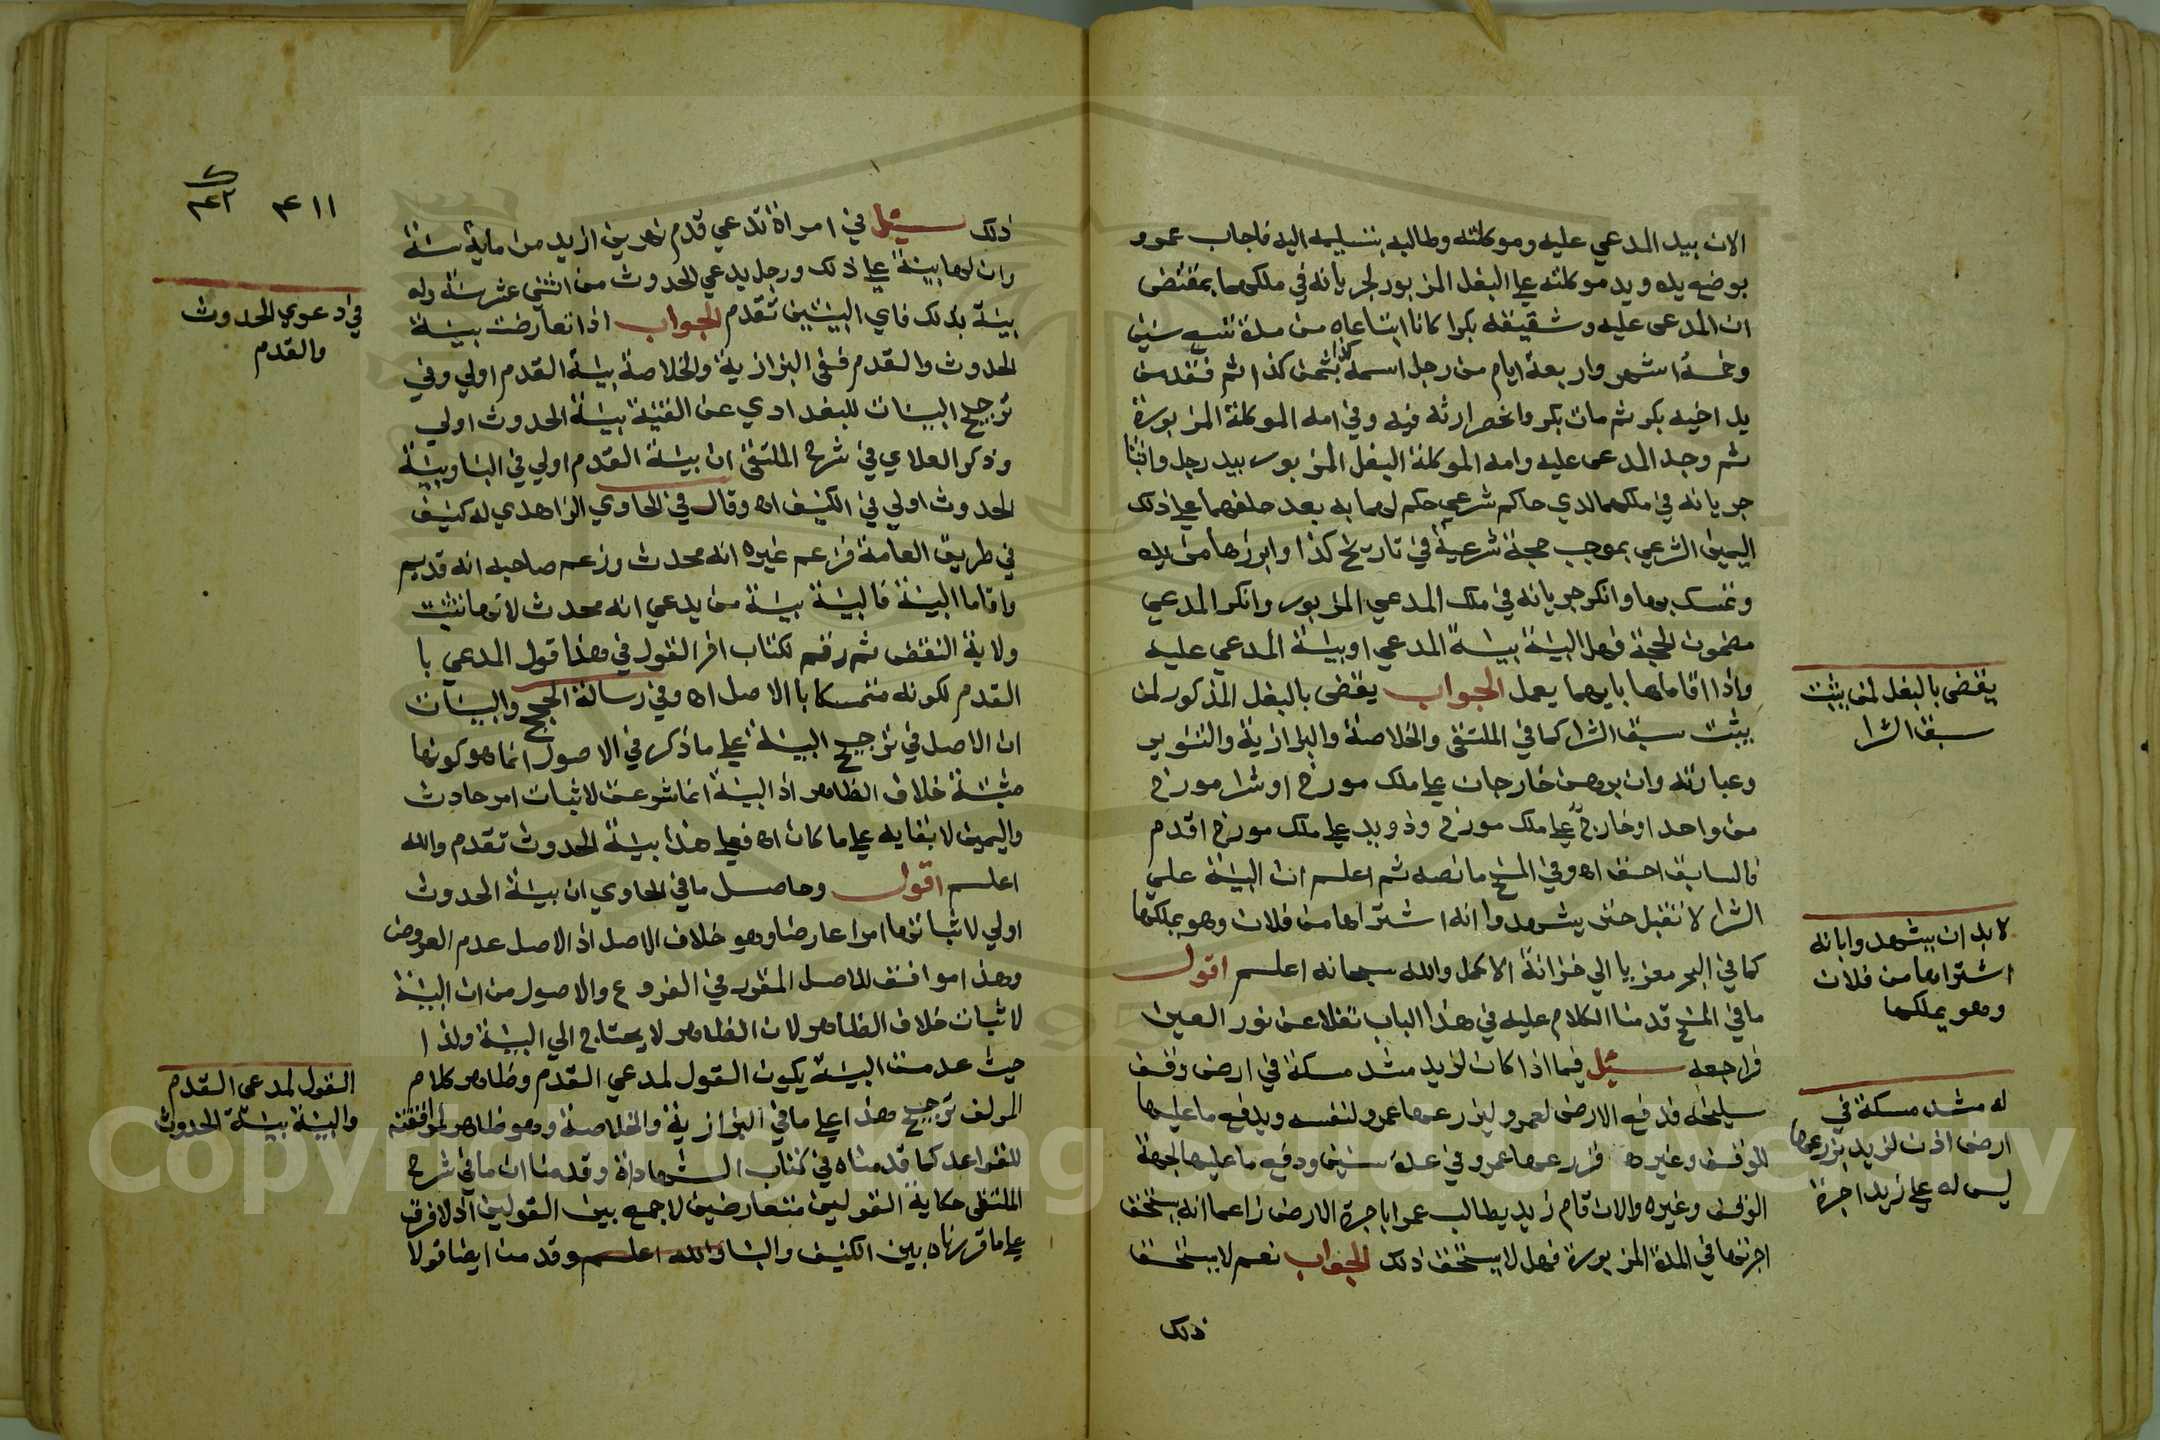 الان بيد المدعي عليه وموكلته وطالبه بتسليمه اليه فاجاب عمرو
بوضع يده ويد موكلته علي البغل المزبور لجريانه في ملكهما بمقتضي
ان المدعي عليه وشقيقه بكرا كانا ابتاعاه من مدة سنين
وخمسة اشهر واربعة ايام من رجل اسمه كذا بثمن كذا ثم فقد من
يد اخيه بكر ثم مات بكر وانحصر ارثه فيه وفي امه الموكلة المزبورة
ثم وجد المدعي عليه وامه الموكلة البغل المزبور بيد رجل واثبتا
جريانه في ملكهما لدي حاكم شرعي حكم لهما به بعد حلفهما علي ذلك
اليمين الشرعي بموجب حجة شرعية في تاريخ كذا وابرزها من يده
وتمسك بها وانكر جريانه في ملك المدعي المزبور وانكر المدعي
مضمون الحجة فهل البينة بينة المدعي او بينة المدعي عليه
واذا اقاماها بايهما يعمل الجواب يقضي بالبغل المذكور لمن
يثبت سبق الشرا كما في الملتقي والخلاصة والبزازية والتنوير
وعبارته وان برهن خارجان علي ملك مورخ او شرا مورخ
من واحد او خارج علي ملك مورخ وذو يد علي ملك مورخ اقدم
فالسابق احق اه وفي المنح ما نصه ثم اعلم ان البينة علي
الشرا لا تقبل حتي يشهدوا انه اشتراها من فلان وهو يملكها
كما في البحر معزيا الي خزانة الاكمل والله سبحانه اعلم اقول
ما في المنح قدمنا الكلام عليه في هذا الباب نقلا عن نور العين
فراجعه سيل فيما اذا كان لزيد مشد مسكة في ارض وقف
سليخه فدفع الارض لعمرو ليزرعها عمرو لنفسه ويدفع ما عليها
للوقف وغيره فزرعها عمرو في عدة سنين ودفع ما عليها لجهة
الوقف وغيره والان قام زيد يطالب عمرا باجرة الارض زاعما انه يستحق
اجرتها في المدة المزبورة فهل لا يستحق ذلك الجواب نعم لا يستحق
ذلك
يقضي بالبغل لمن يثبت
سبق الشرا
لا بد ان يشهدوا بانه
اشتراها من فلان
وهو يملكها
له مشد مسكة في
ارض اذن لزيد بزرعها
ليس له علي زيد اجرة
٤١١
ذلك سيل في امراة تدعي قدم نهرين ازيد من ماية سنة
وان لها بينة علي ذلك ورجل يدعي الحدوث من اثني عشر سنة وله
بينة بذلك فاي البينتين تقدم الجواب اذا تعارضت بينة
الحدوث والقدم ففي البزازية والخلاصة بينة القدم اولي وفي
ترجيح البينات للبغدادي عن القنية بينة الحدوث اولي
وذكر العلاي في شرح الملتقي ان بينة القدم اولي في البنا وبينة
الحدوث اولي في الكنيف اه وقال في الحاوي الزاهدي له كنيف
في طريق العامة فزعم غيره انه محدث وزعم صاحبه انه قديم
واقاما البينة فالبينة بينة من يدعي انه محدث لانها تثبت
ولاية النقض ثم رقم لكتاب اخر القول في هذا قول المدعي با
القدم لكونه متمسكا باالاصل اه وفي رسالة الحجج والبينات
ان الاصل في ترجيح البينة علي ما ذكر في الاصول انما هو كونها
مثبتة خلاف الظاهر اذ البينة انما شرعت لاثبات امر حادث
واليمين لابقايه علي ما كان اه فعلي هذا بينة الحدوث تقدم والله
اعلم اقول وحاصل ما في الحاوي ان بينة الحدوث
اولي لاثباتها امرا عارضا وهو خلاف الاصل اذ الاصل عدم العروض
وهذا موافق للاصل المقرر في الفروع والاصول من ان البينة
لاثبات خلاف الظاهر لان الظاهر لا يحتاج الي البينة ولذا
حيث عدمت البينة يكون القول لمدعي القدم وظاهر كلام
المولف ترجيح هذا علي ما في البزازية والخلاصة وهو ظاهر لموافقته
للقواعد كما قدمناه في كتاب الشهاداة وقدمنا ان ما في شرح
الملتقي حكاية القولين متعارضين لا جمع بين القولين اذ لا فرق
علي ما قررناه بين الكنيف والبنا والله اعلم وقدمنا ايضا قولا
في دعوي الحدوث
والقدم
القول لمدعي القدم
والبينة بينة الحدوث
Copyright © King Saud University